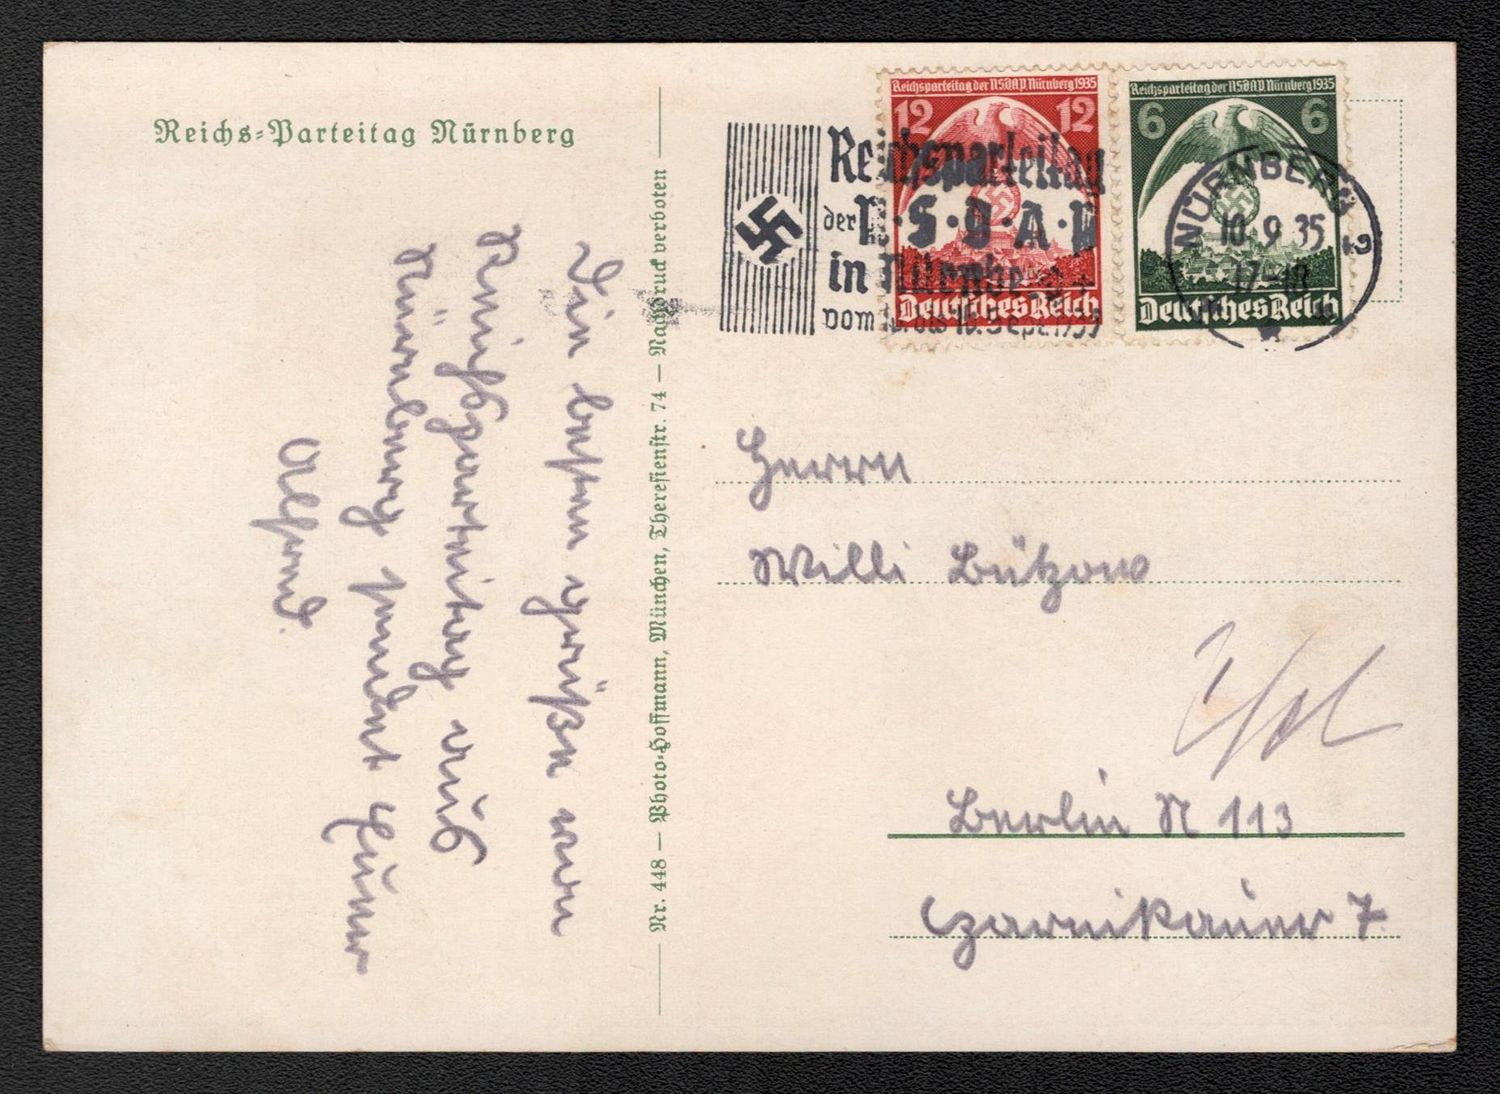 Reichs-Parteitag Nürnberg
Die besten Grüße vom
Reichsparteitag aus
Nürnberg sendet Euer
Alfred.
Nr. 448 — Photo-Hoffmann, München, Theresienstr. 74 — Nachdruck verboten
Reichsparteitag
der N·S·D·A·P
in Nürnberg
vom 10. bis 16. Sept. 1935
Reichsparteitag der NSDAP Nürnberg 1935
12 12
Deutsches Reich
Reichsparteitag der NSDAP Nürnberg 1935
6 6
Deutsches Reich
NÜRNBERG 2
10.9.35
17-18
Herrn
Willi Bützow
Berlin N 113
Czarnikauer 7.